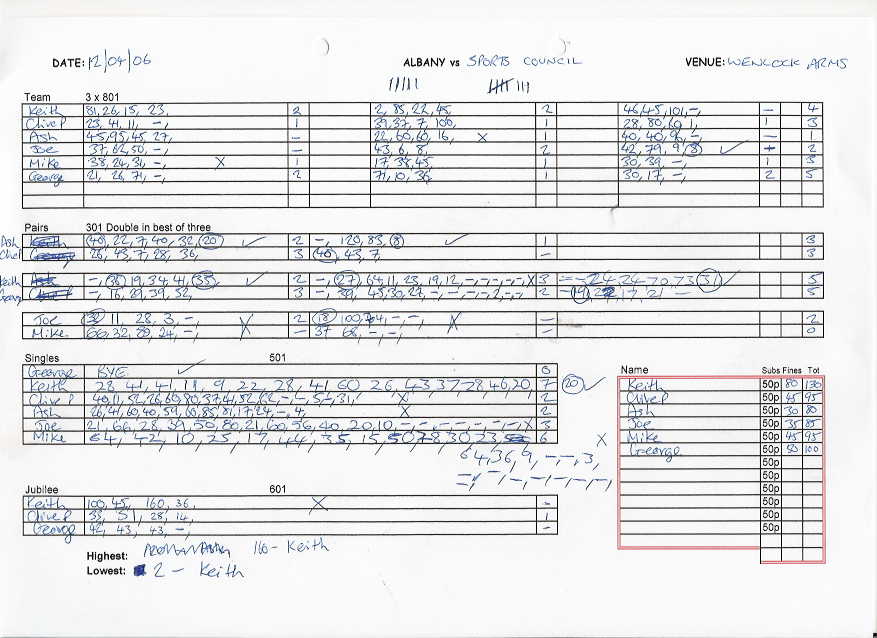 DATE: 12/04/06 ALBANY vs SPORTS COUNCIL VENUE: WENLOCK ARMS
Team 3 x 801
Keith 81, 26, 15, 23, 2 2, 85, 22, 45, 2 46, 45, 101, -, - 4
Clive P 23, 41, 11, -, 1 39, 37, 7, 100, 1 28, 80, 60, 1, 1 3
Ash 45, 95, 45, 27, - 22, 60, 60, 16, X 1 40, 40, 96, -, - 1
Joe 37, 62, 50, -, - 43, 6, 8, 2 42, 79, 9, (8) ✓ + 2
Mike 38, 24, 31, -, X 1 17, 38, 45, 1 30, 39, -, 1 3
George 21, 26, 71, -, 2 71, 10, 36, 1 30, 17, -, 2 5
Pairs 301 Double in best of three
Ash (40), 22, 7, 40, 32, (20) ✓ 2 -, 120, 83, (8) ✓ 1 3
26, 43, 7, 28, 36, 3 (40), 43, 7, - 3
Keith -, 19, 34, 41, ✓ -, (27), 64, 11, 23, 19, 12, -, -, -, -, X 3 5
-, 16, 29, 39, 32, 3 2 5
Joe 11, 28, 3, -, X 2 (18) -, -, X - 2
Mike 66, 32, 80, 24, -, - 37 68, -, -, - 0
Singles 501
George BYE ✓ 0
Keith 28 41, 41, 11, 9, 22, 28, 41 60 26, 43 37 28 46, 20, 7 (20) ✓
Clive P 40, 11, 52, 26, 60, 80, 37, 41, 52, X 2
Ash 26, 41, 60, 40, 59, 60, 85, 81, 17, 24, -, 4, X 2
Joe 21, 66, 28, 39, 50, 80, 21, 60, 56, 40, 20, 10, -, -, -, -, -, X 3
Mike 64, 42, 10, 25, 17, 44, 35, 15, 50 78 30 23, 6 X
64, 36, 9, -, -, 3,
-, -, -, -, -, -, -, -,
Name Subs Fines Tot
Keith 50p 80 130
Clive P 50p 45 95
Ash 50p 30 80
Joe 50p 35 85
Mike 50p 45 95
George 50p 50 100
50p
50p
50p
50p
50p
50p
Jubilee 601
Keith 100, 45, 160, 36, X -
Clive P 33, 51, 28, 14, 1
George 42, 43, 43, -, -
Highest: 160 - Keith
Lowest: 2 - Keith